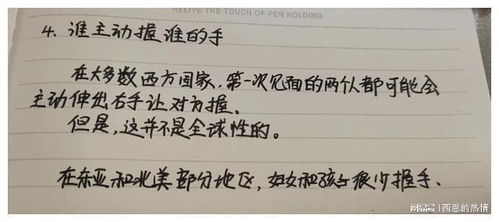 RELIVE THE TOUCH OF PEN HOLDING
4、谁主动握谁的手
在大多数西方国家,第一次见面的两个人都可能会
主动伸出右手让对方握。
但是,这并不是全球性的。
在东亚和北美部分地区,妇女和孩子很少握手、
搜狐号@西恩的热情